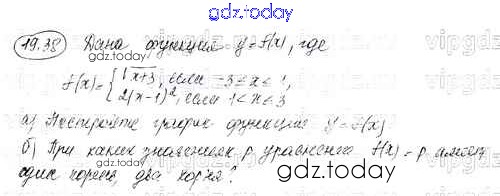 gdz.today
19.38 Дана функция y=f(x), где
gdz.today
f(x)={√x+3, если -3≤x≤1,
2(x-1)², если 1<x≤3
а) Постройте график функции y=f(x)
б) При каких значениях p уравнение f(x)=p имеет
один корень, два корня?
gdz.today